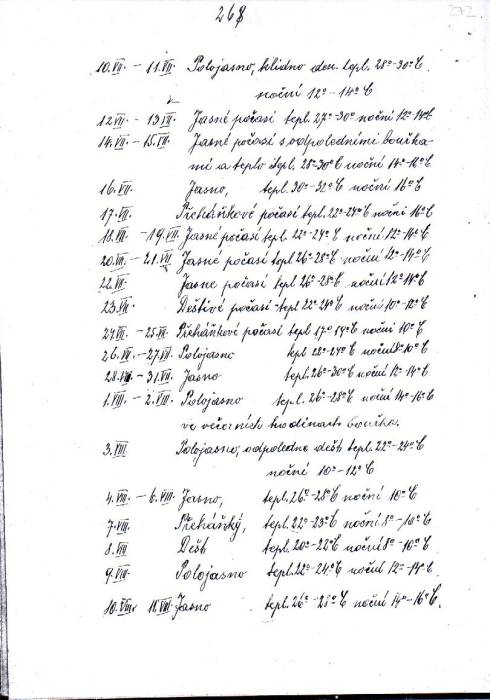 268
272.
10.VII. - 11.VII. Polojasno, klidno den. tepl. 28°-30°C
noční 12°-14°C
12.VII. - 13.VII. Jasné počasí tepl. 27°-30° noční 12°-14°C
14.VII. - 15.VII. Jasné počasí s odpoledními bouřka-
mi a teplo tepl. 28°-30°C noční 14°-16°C
16.VII. Jasno, tepl. 30°-32°C noční 16°C
17.VII. Přeháňkové počasí tepl. 22°-24°C noční 16°C
18.VII. - 19.VII. Jasné počasí tepl. 22°-24°C noční 12°-14°C
20.VII. - 21.VII. Jasné počasí tepl. 26°-28°C noční 12°-14°C
22.VII. Jasné počasí tepl. 26°-28°C noční 12°-14°C
23.VII. Deštivé počasí tepl. 22°-24°C noční 10°-12°C
24.VII. - 25.VII. Přeháňkové počasí tepl. 17°-19°C noční 10°C
26.VII. - 27.VII. Polojasno tepl. 22°-24°C noční 8°-10°C
28.VII. - 31.VII. Jasno tepl. 26°-30°C noční 12°-14°C
1.VIII. - 2.VIII. Polojasno tepl. 26°-28°C noční 14°-16°C
ve večerních hodinách bouřka.
3.VIII. Polojasno, odpoledne déšť tepl. 22°-24°C
noční 10°-12°C
4.VIII. - 6.VIII. Jasno, tepl. 26°-28°C noční 10°C
7.VIII. Přeháňky, tepl. 22°-23°C noční 8°-10°C
8.VIII. Déšť tepl. 20°-22°C noční 8°-10°C
9.VIII. Polojasno tepl. 22°-24°C noční 12°-14°C
10.VIII. 11.VIII. Jasno tepl. 26° noční 14°-16°C.